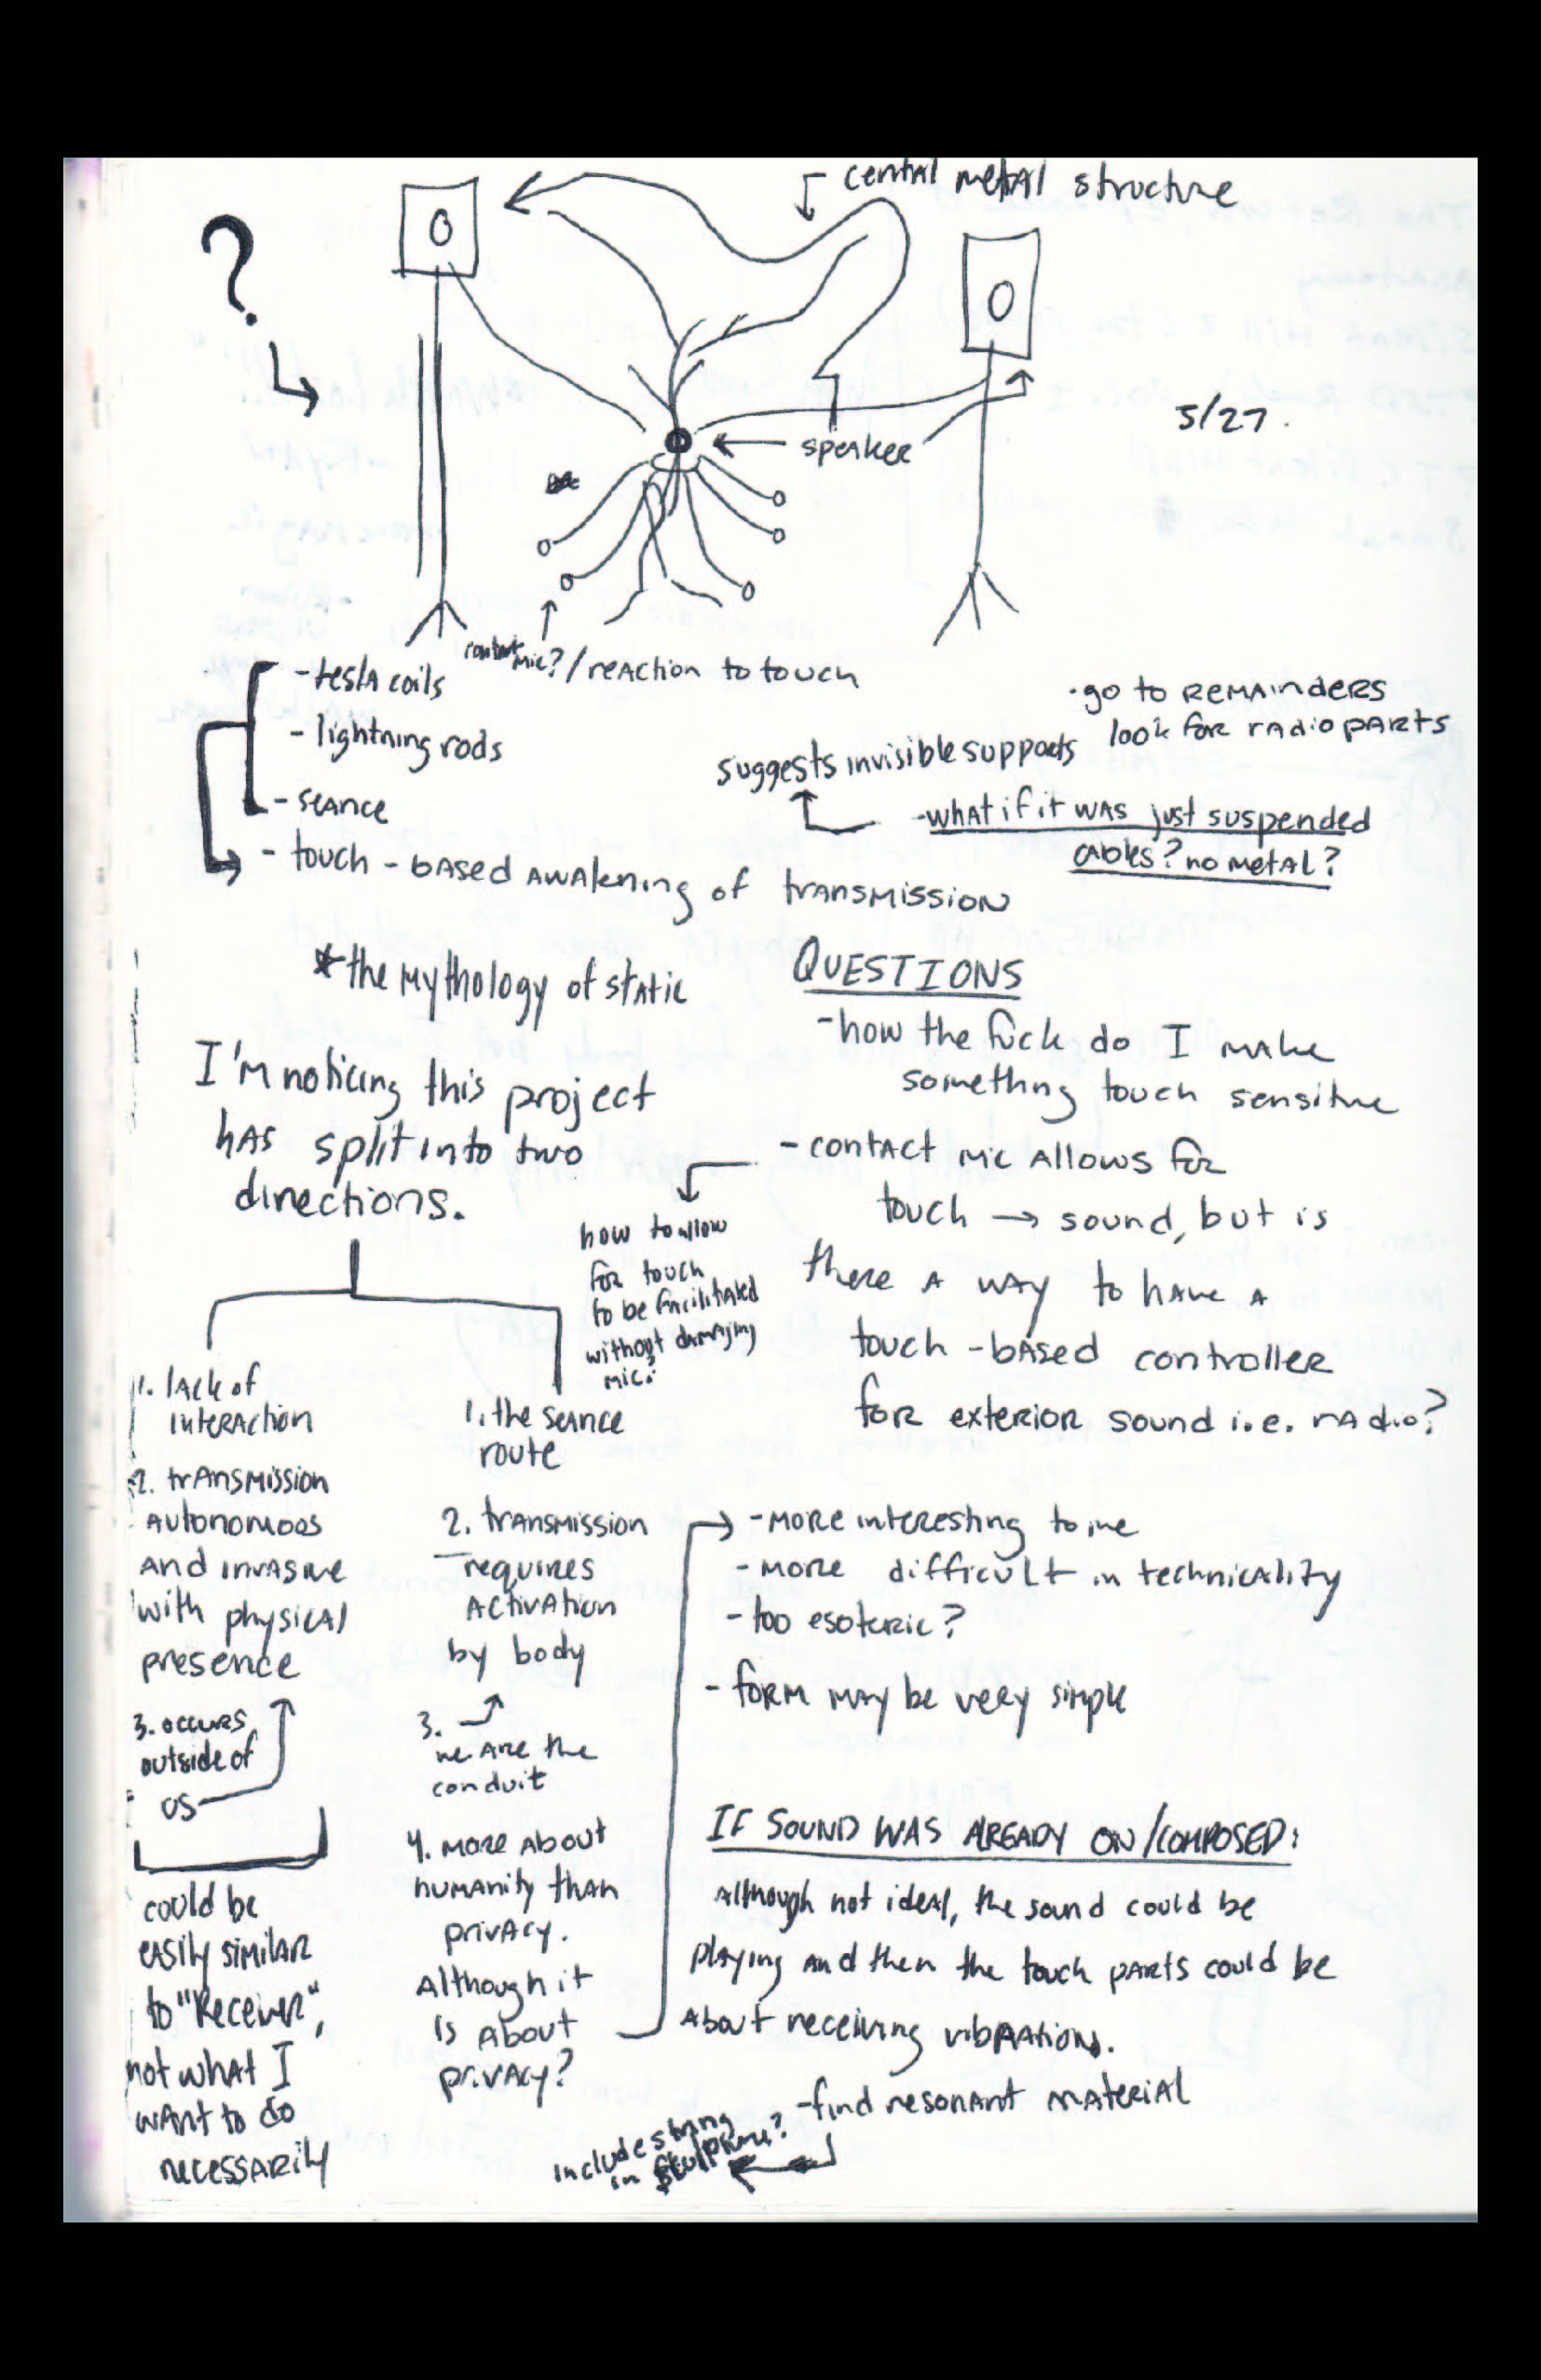 ?
cental metal structure
O
O
5/27.
speaker
contact mic? / reaction to touch
- tesla coils
- lightning rods
- seance
- touch - based awakening of transmission
· go to Remainders
look for radio parts
suggests invisible supports
- what if it was just suspended
cables? no metal?
* the mythology of static
I'm noticing this project
has split into two
directions.
1. lack of
interaction
2. transmission
autonomous
and invasive
with physical
presence
3. occurs
outside of
us
could be
easily similar
to "Receiver",
not what I
want to do
necessarily
1. the seance
route
2. transmission
requires
activation
by body
3.
we are the
conduit
4. more about
humanity than
privacy.
Although it
is about
privacy?
QUESTIONS
- how the fuck do I make
something touch sensitive
- contact mic allows for
touch → sound, but is
there a way to have a
touch - based controller
for exterior sound i.e. radio?
how to allow
for touch
to be facilitated
without damaging
mic?
- more interesting to me
- more difficult in technicality
- too esoteric?
- form may be very simple
IF SOUND WAS ALREADY ON/COMPOSED:
Although not ideal, the sound could be
playing and then the touch parts could be
about receiving vibrations.
- find resonant material
include string
in sculpture?